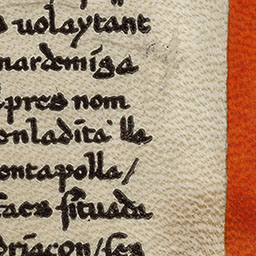 uolaytant
nardemiga
pres nom
enladita lla
ontapolla/
faes situada
driacon/ses